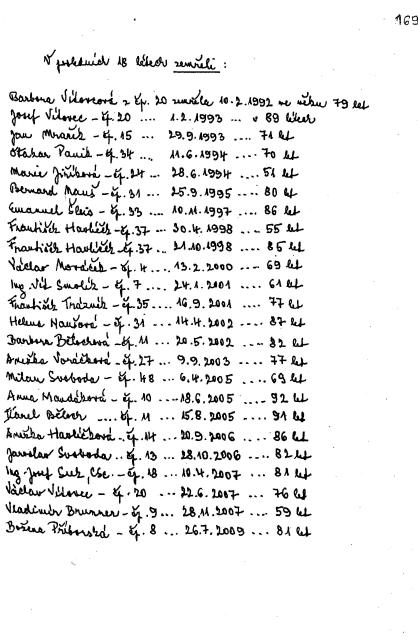 169
V posledních 18 létech zemřeli :
Barbora Vítovcová z čp. 20 zemřela 10.2.1992 ve věku 79 let
Josef Vítovec - čp. 20 .... 1.2.1993 ... v 89 létech
Jan Mrazík - čp. 15 ... 29.9.1993 .... 71 let
Otakar Paník - čp. 34 .... 11.6.1994 .... 70 let
Marie Jiříková - čp. 24 ... 28.6.1994 .... 51 let
Bernard Mauš - čp. 31 ... 25.9.1995 .... 80 let
Emanuel - čp. 33 .... 10.11.1997 .... 86 let
František Havlíček - čp. 37 ... 30.4.1998 .... 55 let
František Havlíček - čp. 37 ... 21.10.1998 .... 85 let
Václav Moráček - čp. 4 .... 13.2.2000 .... 69 let
Ing. Vít Smolík - čp. 7 .... 24.1.2001 .... 61 let
František Trázník - čp. 35 .... 16.9.2001 .... 77 let
Helena Maušová - čp. 31 .... 14.4.2002 .... 87 let
Barbora Bělochová - čp. 11 ... 20.5.2002 .... 82 let
Anežka Voráčková - čp. 27 ... 9.9.2003 .... 77 let
Milan Svoboda - čp. 48 ... 6.4.2005 .... 69 let
Anna Mandáková - čp. 10 .... 18.6.2005 .... 92 let
Karel Běloch .... čp. 11 ... 15.8.2005 .... 91 let
Anežka Havlíčková .. čp. 14 ... 20.9.2006 .... 86 let
Jaroslav Svoboda .. čp. 13 ... 28.10.2006 .... 82 let
Ing. Josef Suk, Csc. - čp. 18 ... 10.4.2007 .... 81 let
Václav Vítovec - čp. 20 .... 22.6.2007 .... 76 let
Vladimír Brunner - čp. 9 ... 28.11.2007 .... 59 let
Božena Příborská - čp. 8 ... 26.7.2009 ... 81 let